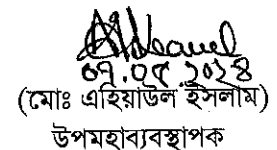 ০৭.০৫.২০২৪
(মোঃ এহিয়াউল ইসলাম)
উপমহাব্যবস্থাপক